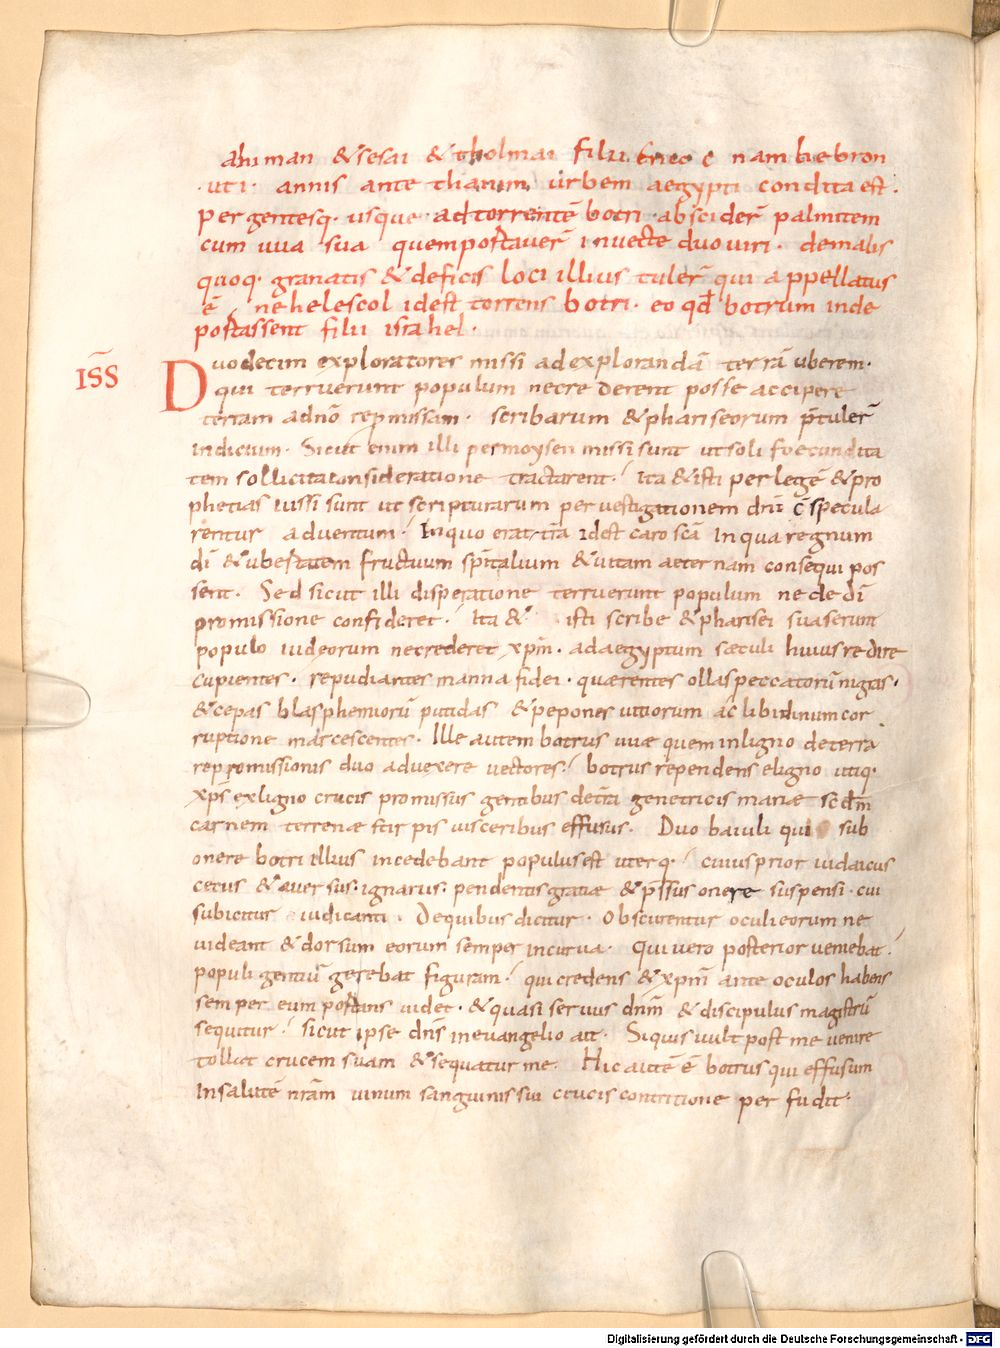 ahiman & sesai & tholmai filii enac nam hebron
·uii· annis ante thanim urbem aegypti condita est·
pergentesq· usque ad torrentē botri absciderͫ palmitem
cum uua sua quem portauerͫ in uecte duo uiri· de malis
quoq· granatis & de ficis loci illius tulerͫ qui appellatus
ē nehelescol id est torrens botri· eo qđ botrum inde
portassent filii israhel·
IS̄S̄ Duodecim exploratores missi ad explorandā terrā uberem·
qui terruerunt populum ne crederent posse accipere
terram a dn̄o repmissam· scribarum & phariseorum p̄tulerͫ
indicium· Sicut enim illi per moysen missi sunt ut soli foecundita
tem sollicita consideratione tractarent· ita & isti per legē & pro
phetias iussi sunt ut scripturarum per uestigationem dn̄i c̄ specula
rentur aduentum· In quo erat t̄ra id est caro sc̄a in qua regnum
dī & ubertatem fructuum sp̄italium & uitam aeternam consequi pos
sent· Sed sicut illi disperatione terruerunt populum ne de dī
promissione confideret· ita & isti scribe & pharisei suaserunt
populo iudeorum ne crederet xp̄m· ad aegyptum sæculi huius redire
cupientes· repudiantes manna fidei· quærentes ollas peccatorū nigras·
& cepas blasphemiorū putidas & pepones uitiorum ac libidinum cor
ruptione marcescentes· Ille autem botrus uuæ quem in ligno de terra
repromissionis duo aduexere uectores· botrus rependens e ligno utiq·
xp̄s ex ligno crucis promissus gentibus de t̄ra genetricis mariæ scđm
carnem terrenæ stirpis uisceribus effusus· Duo baiuli qui sub
onere botri illius incedebant populus est uterq· cuius prior iudaicus
cetus & auersus· ignarus· pendentis gratiæ & p̄ssus onere suspensi· cui
subicitur iudicanti· De quibus dicitur· Obscurentur oculi eorum ne
uideant & dorsum eorum semper incurua· Qui uero posterior ueniebat·
populi gentiū gerebat figuram· qui credens & xp̄m ante oculos habens
semper eum portans uidet· & quasi seruus dn̄m & discipulus magistrū
sequitur· sicut ipse dn̄s in euangelio ait· Siquis uult post me uenire
tollat crucem suam & sequatur me· Hic autē ē botrus qui effusum
In salutē n̄ram uinum sanguinis sui crucis contritione perfudit·
Digitalisierung gefördert durch die Deutsche Forschungsgemeinschaft - DFG